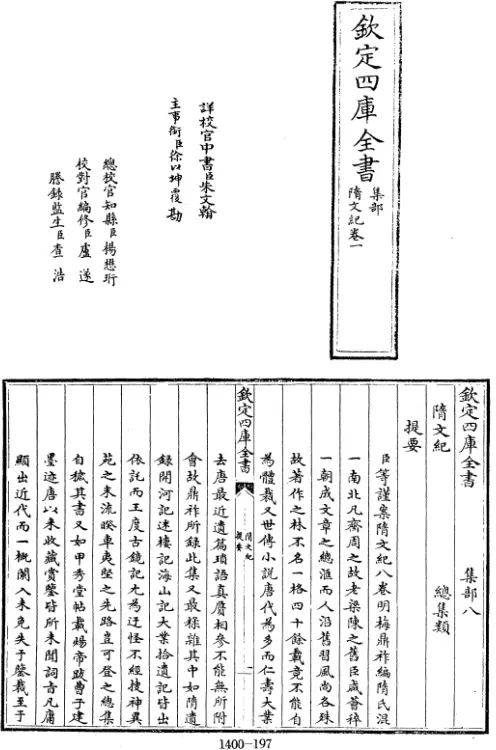 欽定四庫全書 集部
隋文紀卷一
詳校官中書臣朱文翰
主事銜臣徐以坤覆勘
總校官知縣臣楊懋珩
校對官編修臣盧遂
謄錄監生臣查浩
欽定四庫全書 集部八
隋文紀 總集類
提要
臣等謹案隋文紀八卷明梅鼎祚編隋氏混
一南北凡齊周之故老梁陳之舊臣咸薈稡
一朝成文章之總滙而人沿舊習風尚各殊
故著作之林不名一格四十餘載竟不能自
為體裁又世傳小說唐代為多而仁壽大業
欽定四庫全書 隋文紀 提要 一
去唐最近遺篇瑣語真贋相参不能無所附
會故鼎祚所録此集又最穇雜其中如隋遺
録開河記迷樓記海山記大業拾遺記皆出
依託而王度古鏡記尤為迂怪不經搜神異
苑之末流睽車夷堅之先路豈可登之總集
自穢其書又如甲秀堂帖載煬帝跋曹子建
墨迹唐以來收藏賞鑒皆所未聞詞旨凡庸
顯出近代而一概闌入未免失于鑒裁至于
1400-197